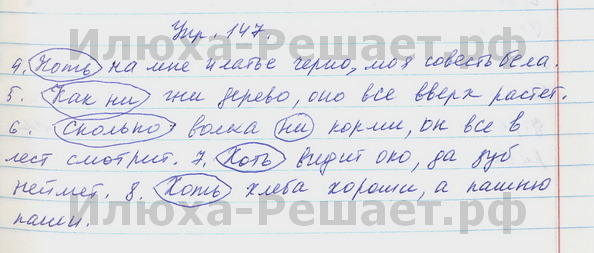 Упр. 147.
Илюха-Решает.рф
4. Хоть на мне платье черно, моя совесть бела.
5. Как ни гни дерево, оно все вверх растет.
6. Сколько волка ни корми, он все в
лест смотрит. 7. Хоть видит око, да зуб
неймет. 8. Хоть хлеба хороши, а пашню
Илюха-Решает.рф
паши.